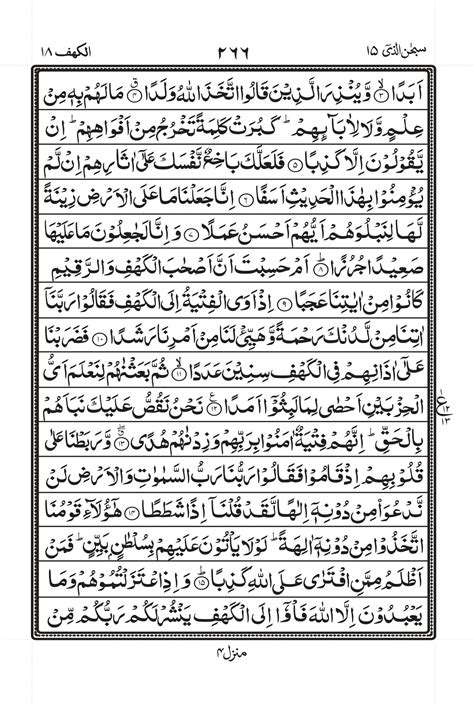 سبحٰن الذی ۱۵ ۲۶۶ الکهف ۱۸
اَبَدًا ۙ﴿۳﴾ وَّيُنْذِرَ الَّذِيْنَ قَالُوا اتَّخَذَ اللّٰهُ وَلَدًا ۗ﴿۴﴾ مَا لَهُمْ بِهٖ مِنْ
عِلْمٍ وَّلَا لِاٰبَآئِهِمْ ؕ كَبُرَتْ كَلِمَةً تَخْرُجُ مِنْ اَفْوَاهِهِمْ ؕ اِنْ
يَّقُوْلُوْنَ اِلَّا كَذِبًا ﴿۵﴾ فَلَعَلَّكَ بَاخِعٌ نَّفْسَكَ عَلٰٓى اٰثَارِهِمْ اِنْ لَّمْ
يُؤْمِنُوْا بِهٰذَا الْحَدِيْثِ اَسَفًا ﴿۶﴾ اِنَّا جَعَلْنَا مَا عَلَى الْاَرْضِ زِيْنَةً
لَّهَا لِنَبْلُوَهُمْ اَيُّهُمْ اَحْسَنُ عَمَلًا ﴿۷﴾ وَاِنَّا لَجٰعِلُوْنَ مَا عَلَيْهَا
صَعِيْدًا جُرُزًا ؕ﴿۸﴾ اَمْ حَسِبْتَ اَنَّ اَصْحٰبَ الْكَهْفِ وَالرَّقِيْمِ
كَانُوْا مِنْ اٰيٰتِنَا عَجَبًا ﴿۹﴾ اِذْ اَوَى الْفِتْيَةُ اِلَى الْكَهْفِ فَقَالُوْا رَبَّنَاۤ
اٰتِنَا مِنْ لَّدُنْكَ رَحْمَةً وَّهَيِّئْ لَنَا مِنْ اَمْرِنَا رَشَدًا ﴿۱۰﴾ فَضَرَبْنَا
عَلٰٓى اٰذَانِهِمْ فِى الْكَهْفِ سِنِيْنَ عَدَدًا ۙ﴿۱۱﴾ ثُمَّ بَعَثْنٰهُمْ لِنَعْلَمَ اَىُّ
الْحِزْبَيْنِ اَحْصٰى لِمَا لَبِثُوْۤا اَمَدًا ﴿۱۲﴾ نَحْنُ نَقُصُّ عَلَيْكَ نَبَاَهُمْ
۱
ع ۱۲
۱۳
بِالْحَقِّ ؕ اِنَّهُمْ فِتْيَةٌ اٰمَنُوْا بِرَبِّهِمْ وَزِدْنٰهُمْ هُدًى ۖ﴿۱۳﴾ وَّرَبَطْنَا عَلٰى
قُلُوْبِهِمْ اِذْ قَامُوْا فَقَالُوْا رَبُّنَا رَبُّ السَّمٰوٰتِ وَالْاَرْضِ لَنْ
نَّدْعُوَا۠ مِنْ دُوْنِهٖۤ اِلٰهًا لَّقَدْ قُلْنَاۤ اِذًا شَطَطًا ﴿۱۴﴾ هٰٓؤُلَآءِ قَوْمُنَا
اتَّخَذُوْا مِنْ دُوْنِهٖۤ اٰلِهَةً ؕ لَوْلَا يَاْتُوْنَ عَلَيْهِمْ بِسُلْطٰنٍۭ بَيِّنٍ ؕ فَمَنْ
اَظْلَمُ مِمَّنِ افْتَرٰى عَلَى اللّٰهِ كَذِبًا ؕ﴿۱۵﴾ وَاِذِ اعْتَزَلْتُمُوْهُمْ وَمَا
يَعْبُدُوْنَ اِلَّا اللّٰهَ فَاْوٗۤا اِلَى الْكَهْفِ يَنْشُرْ لَكُمْ رَبُّكُمْ مِّنْ
منزل ۴